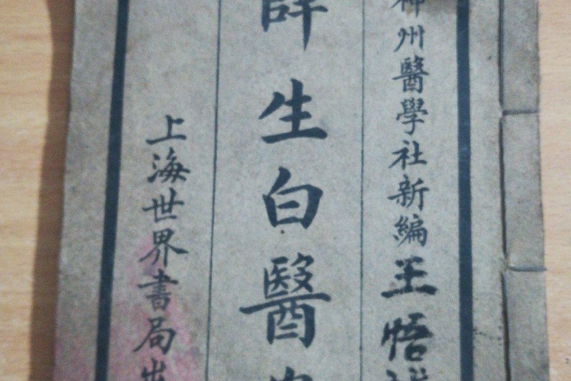 神州醫學社新編王悟
薛生白醫
上海世界書局出